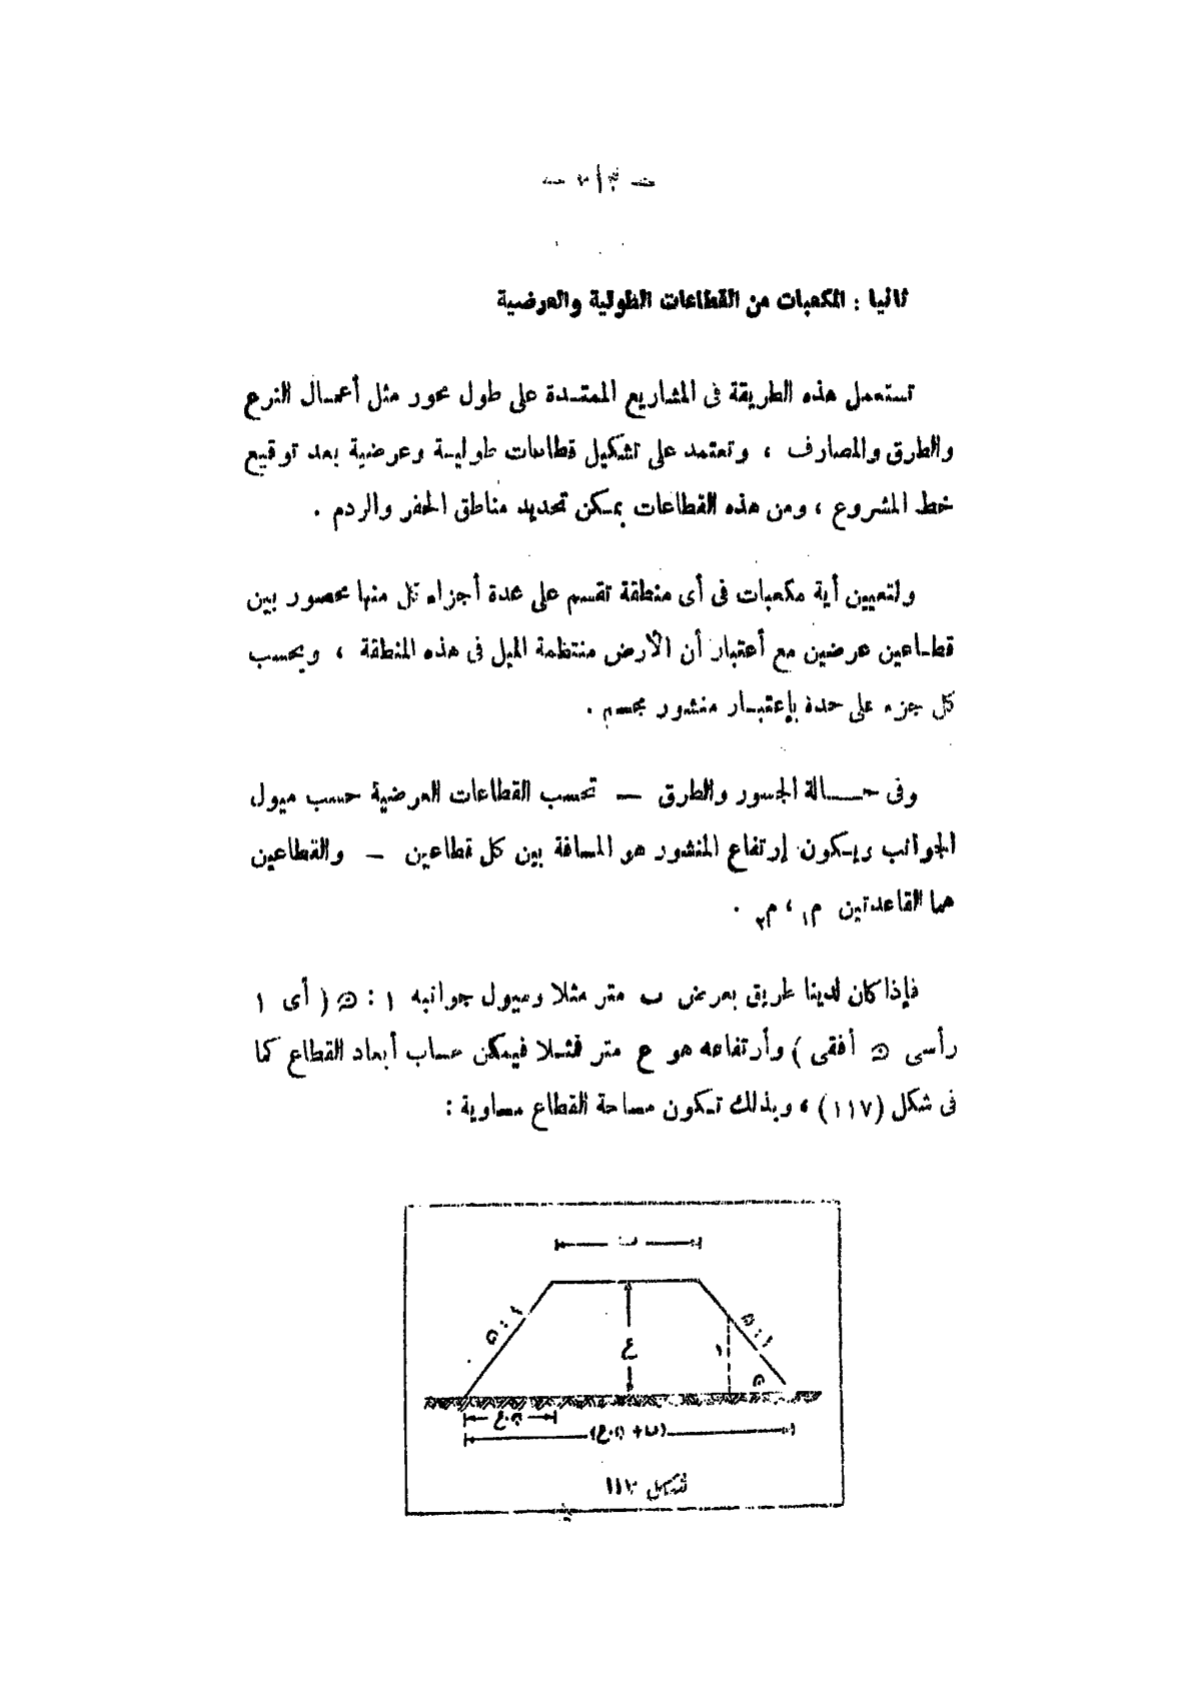 ثانيا : المكعبات من القطاعات الطولية والعرضية
تستعمل هذه الطريقة فى المشاريع الممتدة على طول محور مثل أعمال الترع
والطرق والمصارف ، وتعتمد على تشكيل قطاعات طولية وعرضية بعد توقيع
خط المشروع ، ومن هذه القطاعات يمكن تحديد مناطق الحفر والردم .
ولتعيين أية مكعبات فى أى منطقة تقسم على عدة أجزاء كل منها محصور بين
قطاعين عرضين مع أعتبار أن الأرض منتظمة الميل فى هذه المنطقة ، ويحسب
كل جزء على حدة بإعتبار منشور مجسم .
وفى حالة الجسور والطرق — تحسب القطاعات العرضية حسب ميول
الجوانب ويكون إرتفاع المنشور هو المسافة بين كل قطاعين — والقطاعين
هما القاعدتين م١ ، م٢ .
فإذا كان لدينا طريق بعرض ب متر مثلا وميول جوانبه ١ : ن ( أى ١
رأسى ن أفقى ) وأرتفاعه هو ع متر فمثلا فيمكن حساب أبعاد القطاع كما
فى شكل (١١٧) ، وبذلك تكون مساحة القطاع مساوية :
ب
١ : ن
ع
١
١ : ن
ن
ن.ع
شكل ١١٧